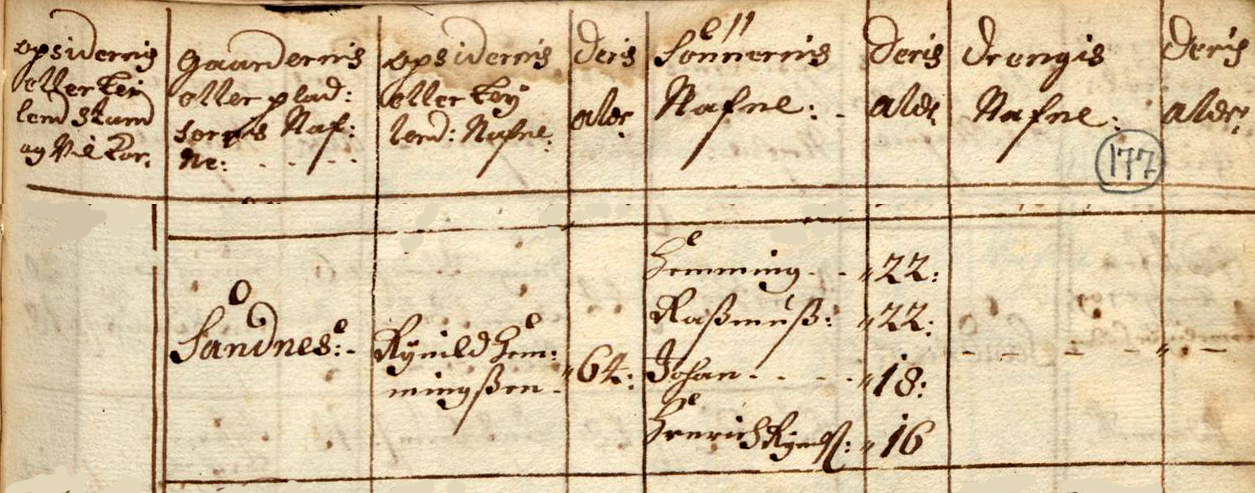 opsidernis
eller lei
lend stand
og Vilkor.
Gaardernis
eller plad:
sernis Naf:
ne:
opsidernis
eller ley
lend: Nafne.
Deris
alder
Sönnernis
Nafne:
Deris
alder
Drengis
Nafne:
Deris
alder
177
Sandnes:
Hem:
mingßen
64:
Hemming
22:
Raßmuß:
22:
Johan
18:
Henrich
16